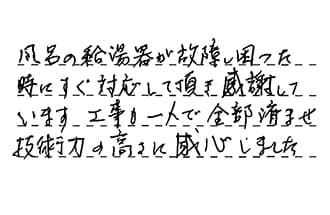 風呂の給湯器が故障し困った
時にすぐ対応して頂き感謝して
います 工事も一人で全部済ませ
技術力の高さに感心しました